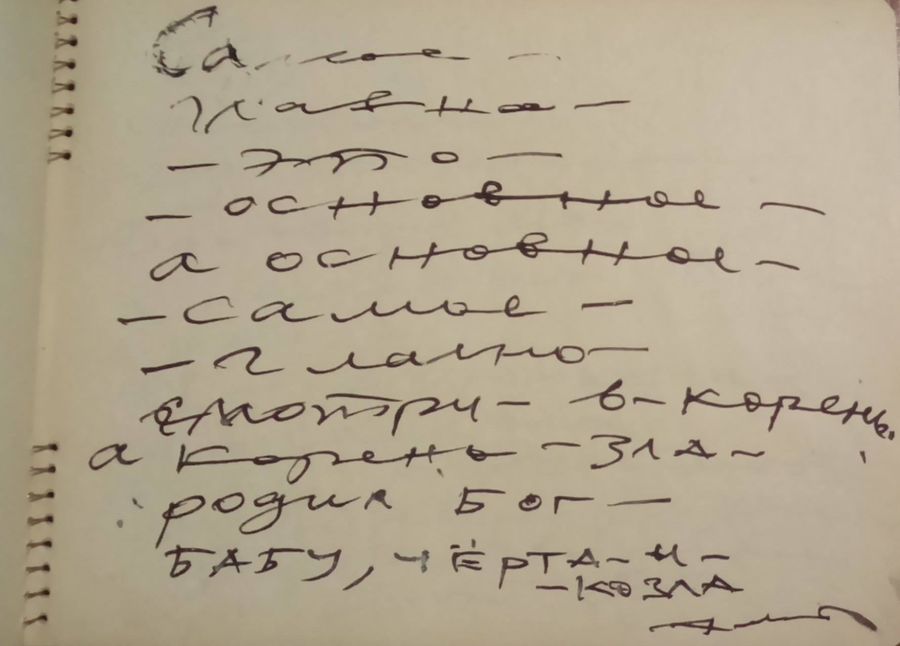 Самое -
главно -
- это -
- основное -
а основное -
- Самое -
- главно -
смотри - в - корень.
а корень - ЗЛА -
родил Бог -
БАБУ, ЧЁРТА - И -
- КОЗЛА